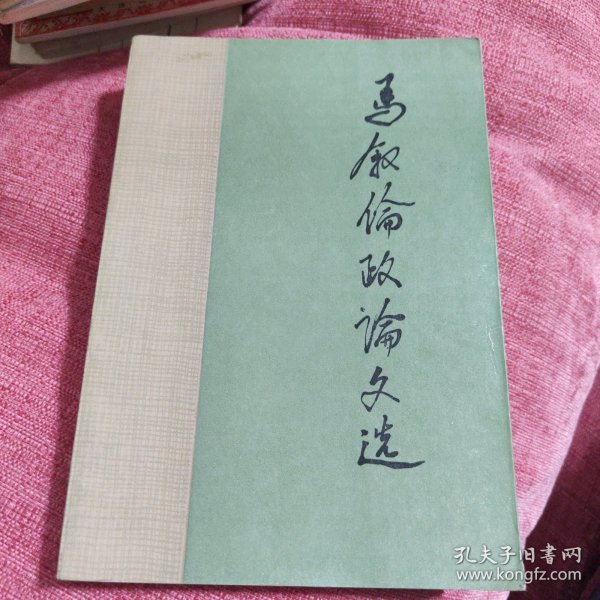 马叙伦政论文选
孔夫子旧書网
www.kongfz.com